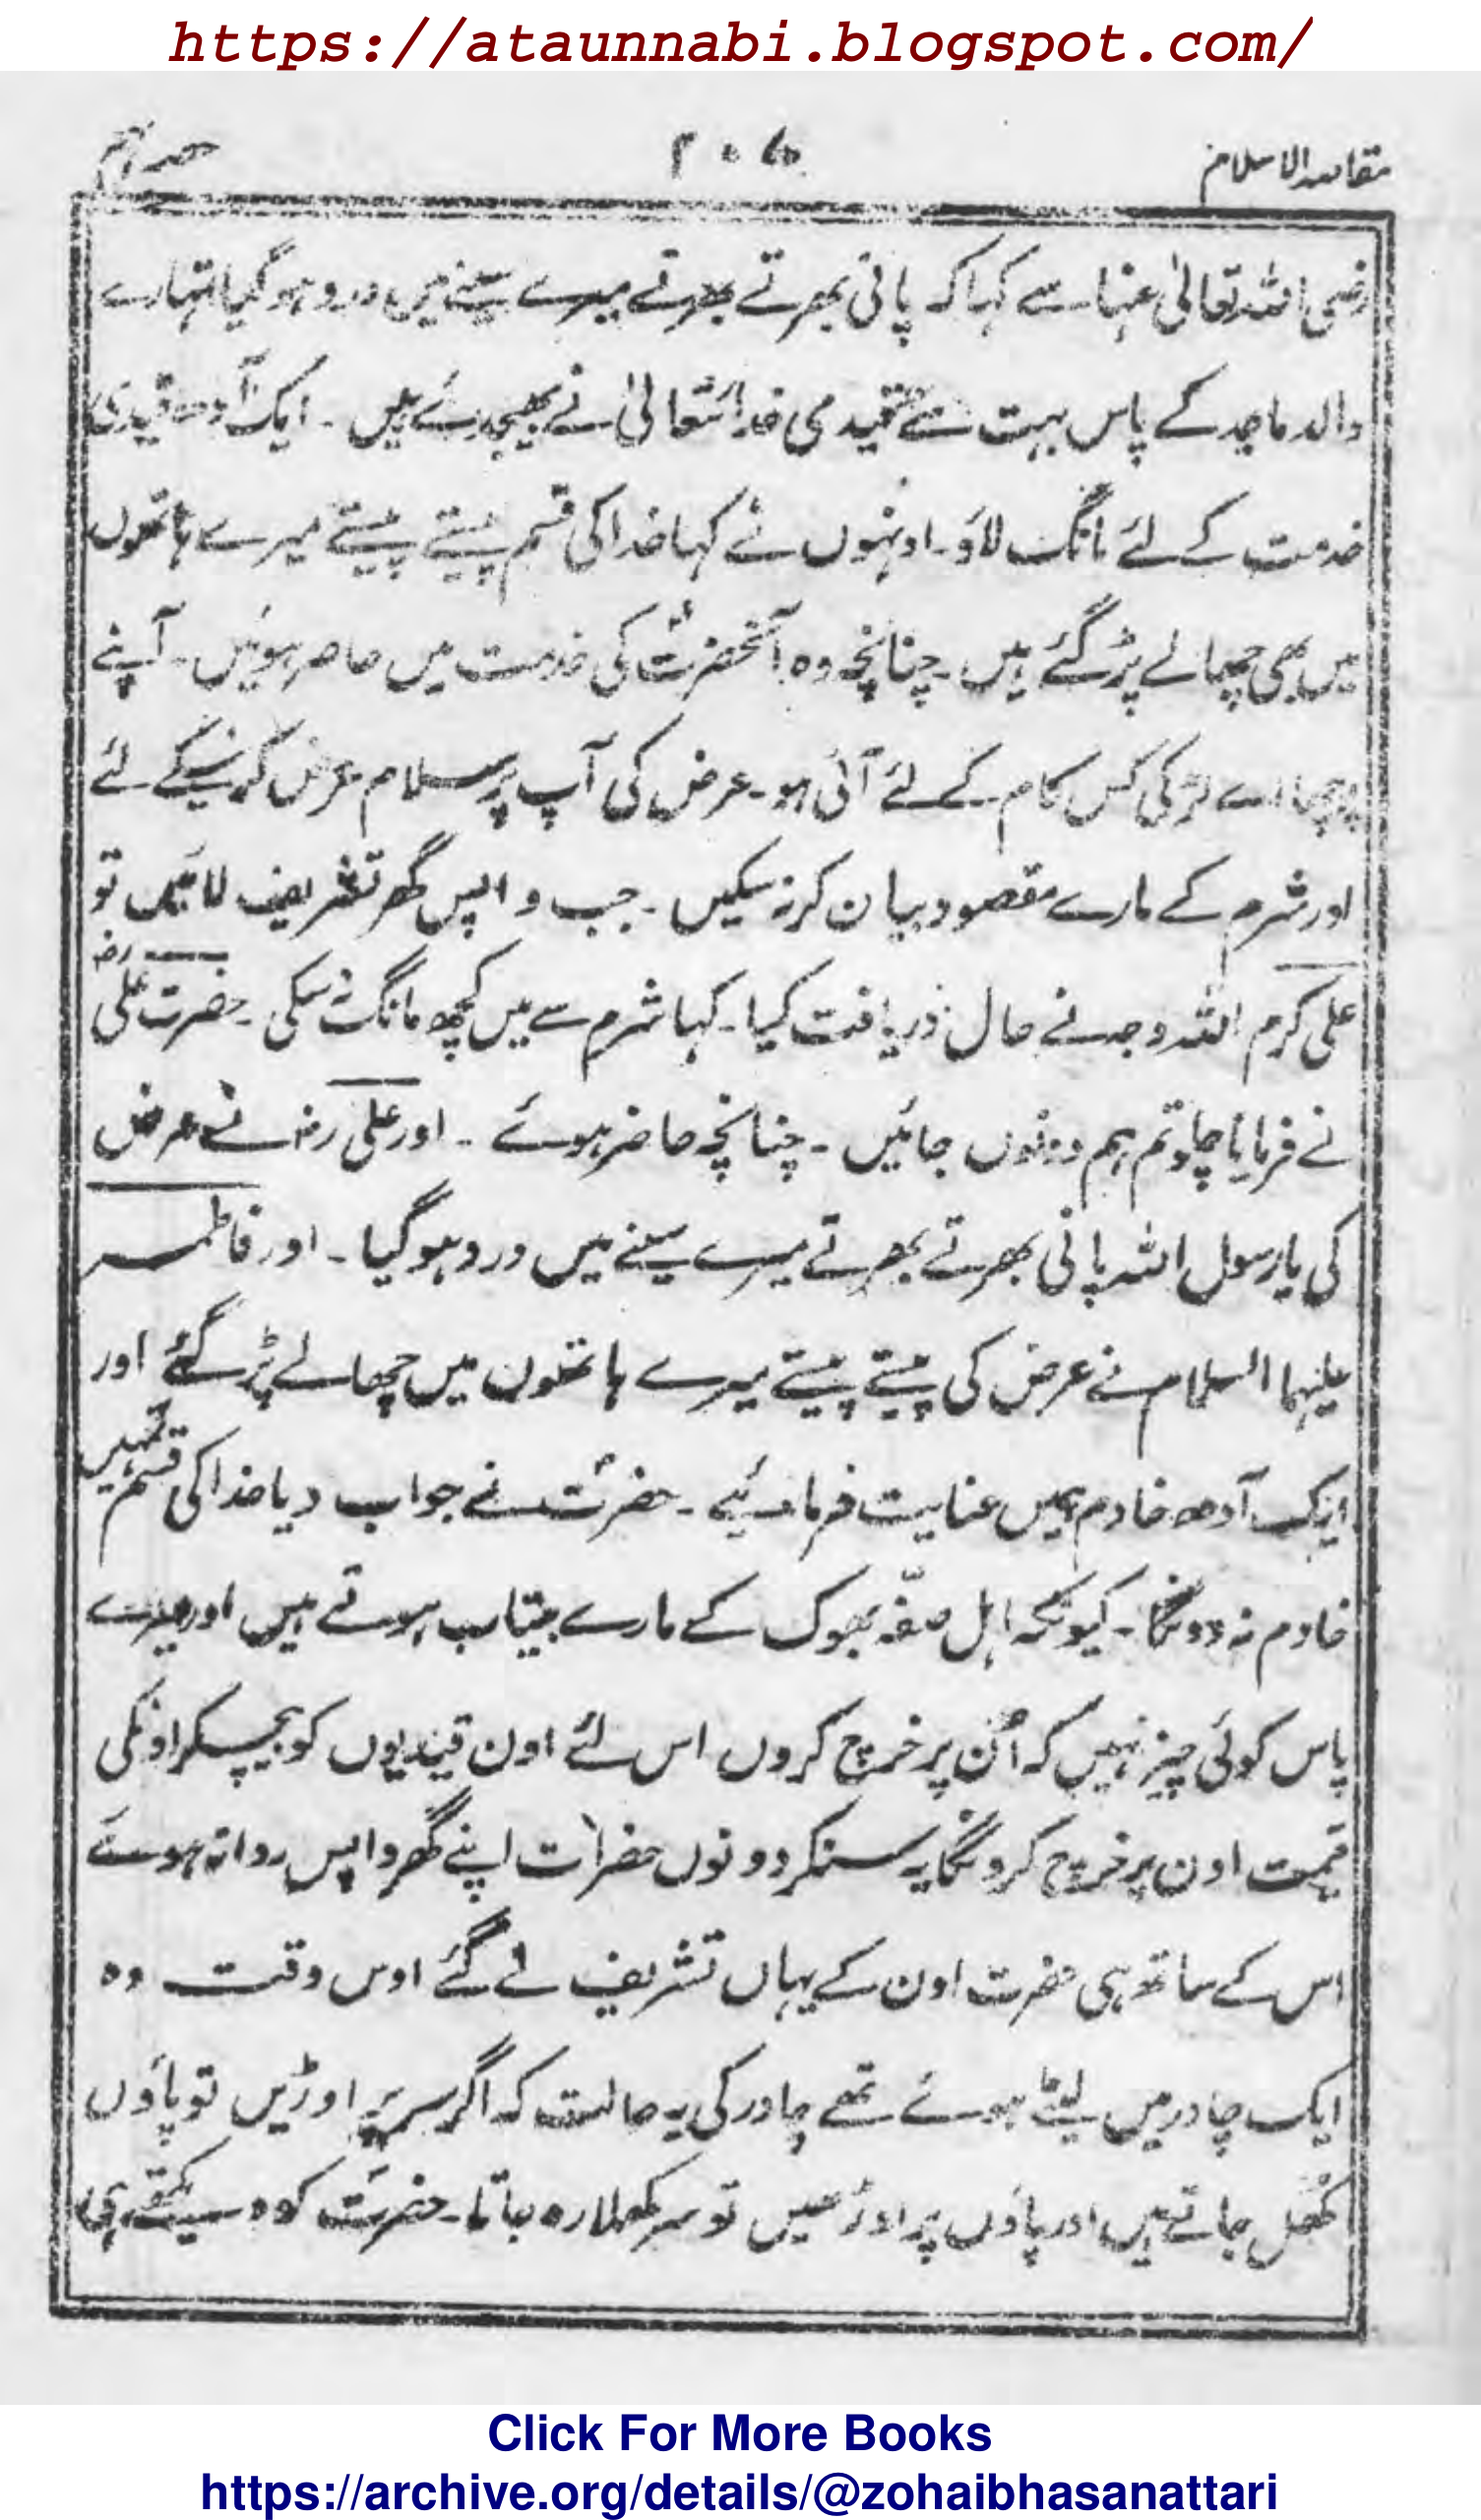 https://ataunnabi.blogspot.com/
مقاصد الاسلام ۲۰۵ حصہ
رضی اللہ تعالیٰ عنہا سے کہا کہ پانی بھرتے بھرتے میرے سینے میں درد ہوگیا تمہارے
والد ماجد کے پاس بہت سے قیدی خدائتعالیٰ نے بھیجدئے ہیں ۔ ایک آدھ قیدی
خدمت کے لئے مانگ لاؤ ۔ اونہوں نے کہا خدا کی قسم پیستے پیستے میرے ہاتھوں
میں بھی چھالے پڑ گئے ہیں ۔ چنانچہ وہ آنحضرتؐ کی خدمت میں حاضر ہوئیں ۔ آپنے
پوچھا اے لڑکی کس کام کے لئے آئی ہو ۔ عرض کی آپ پر سلام عرض کرنیکے لئے
اور شرم کے مارے مقصود بیان کر نہ سکیں ۔ جب واپس گھر تشریف لائیں تو
علی کرم اللہ وجہہ نے حال دریافت کیا ۔ کہا شرم سے میں کچھ مانگ نہ سکی ۔ حضرت علی رضہ
نے فرمایا چلو تم ہم دونوں جائیں ۔ چنانچہ حاضر ہوئے ۔ اور علی رضہ نے عرض
کی یا رسول اللہ پانی بھرتے بھرتے میرے سینے میں درد ہوگیا ۔ اور فاطمہ
علیہا السلام نے عرض کی پیستے پیستے میرے ہاتھوں میں چھالے پڑ گئے اور
ایک آدھ خادم ہمیں عنایت فرمائیے ۔ حضرتؐ نے جواب دیا خدا کی قسم تمہیں
خادم نہ دونگا ۔ کیونکہ اہل صفّہ بھوک کے مارے بیتاب ہوتے ہیں اور میرے
پاس کوئی چیز نہیں کہ اُن پر خرچ کروں اس لئے اون قیدیوں کو بیچکر اونکی
قیمت اون پر خرچ کرونگا یہ سنکر دونوں حضرات اپنے گھر واپس روانہ ہوئے
اس کے ساتھ ہی حضرت اون کے یہاں تشریف لے گئے اوس وقت وہ
ایک چادر میں لیٹے ہوئے تھے چادر کی یہ حالت کہ اگر سر پر اوڑیں تو پاؤں
کُھل جاتے ہیں اور پاؤں پر اوڑھیں تو سر کھلا رہ جاتا ۔ حضرتؐ کو دیکھتے ہی
Click For More Books
https://archive.org/details/@zohaibhasanattari